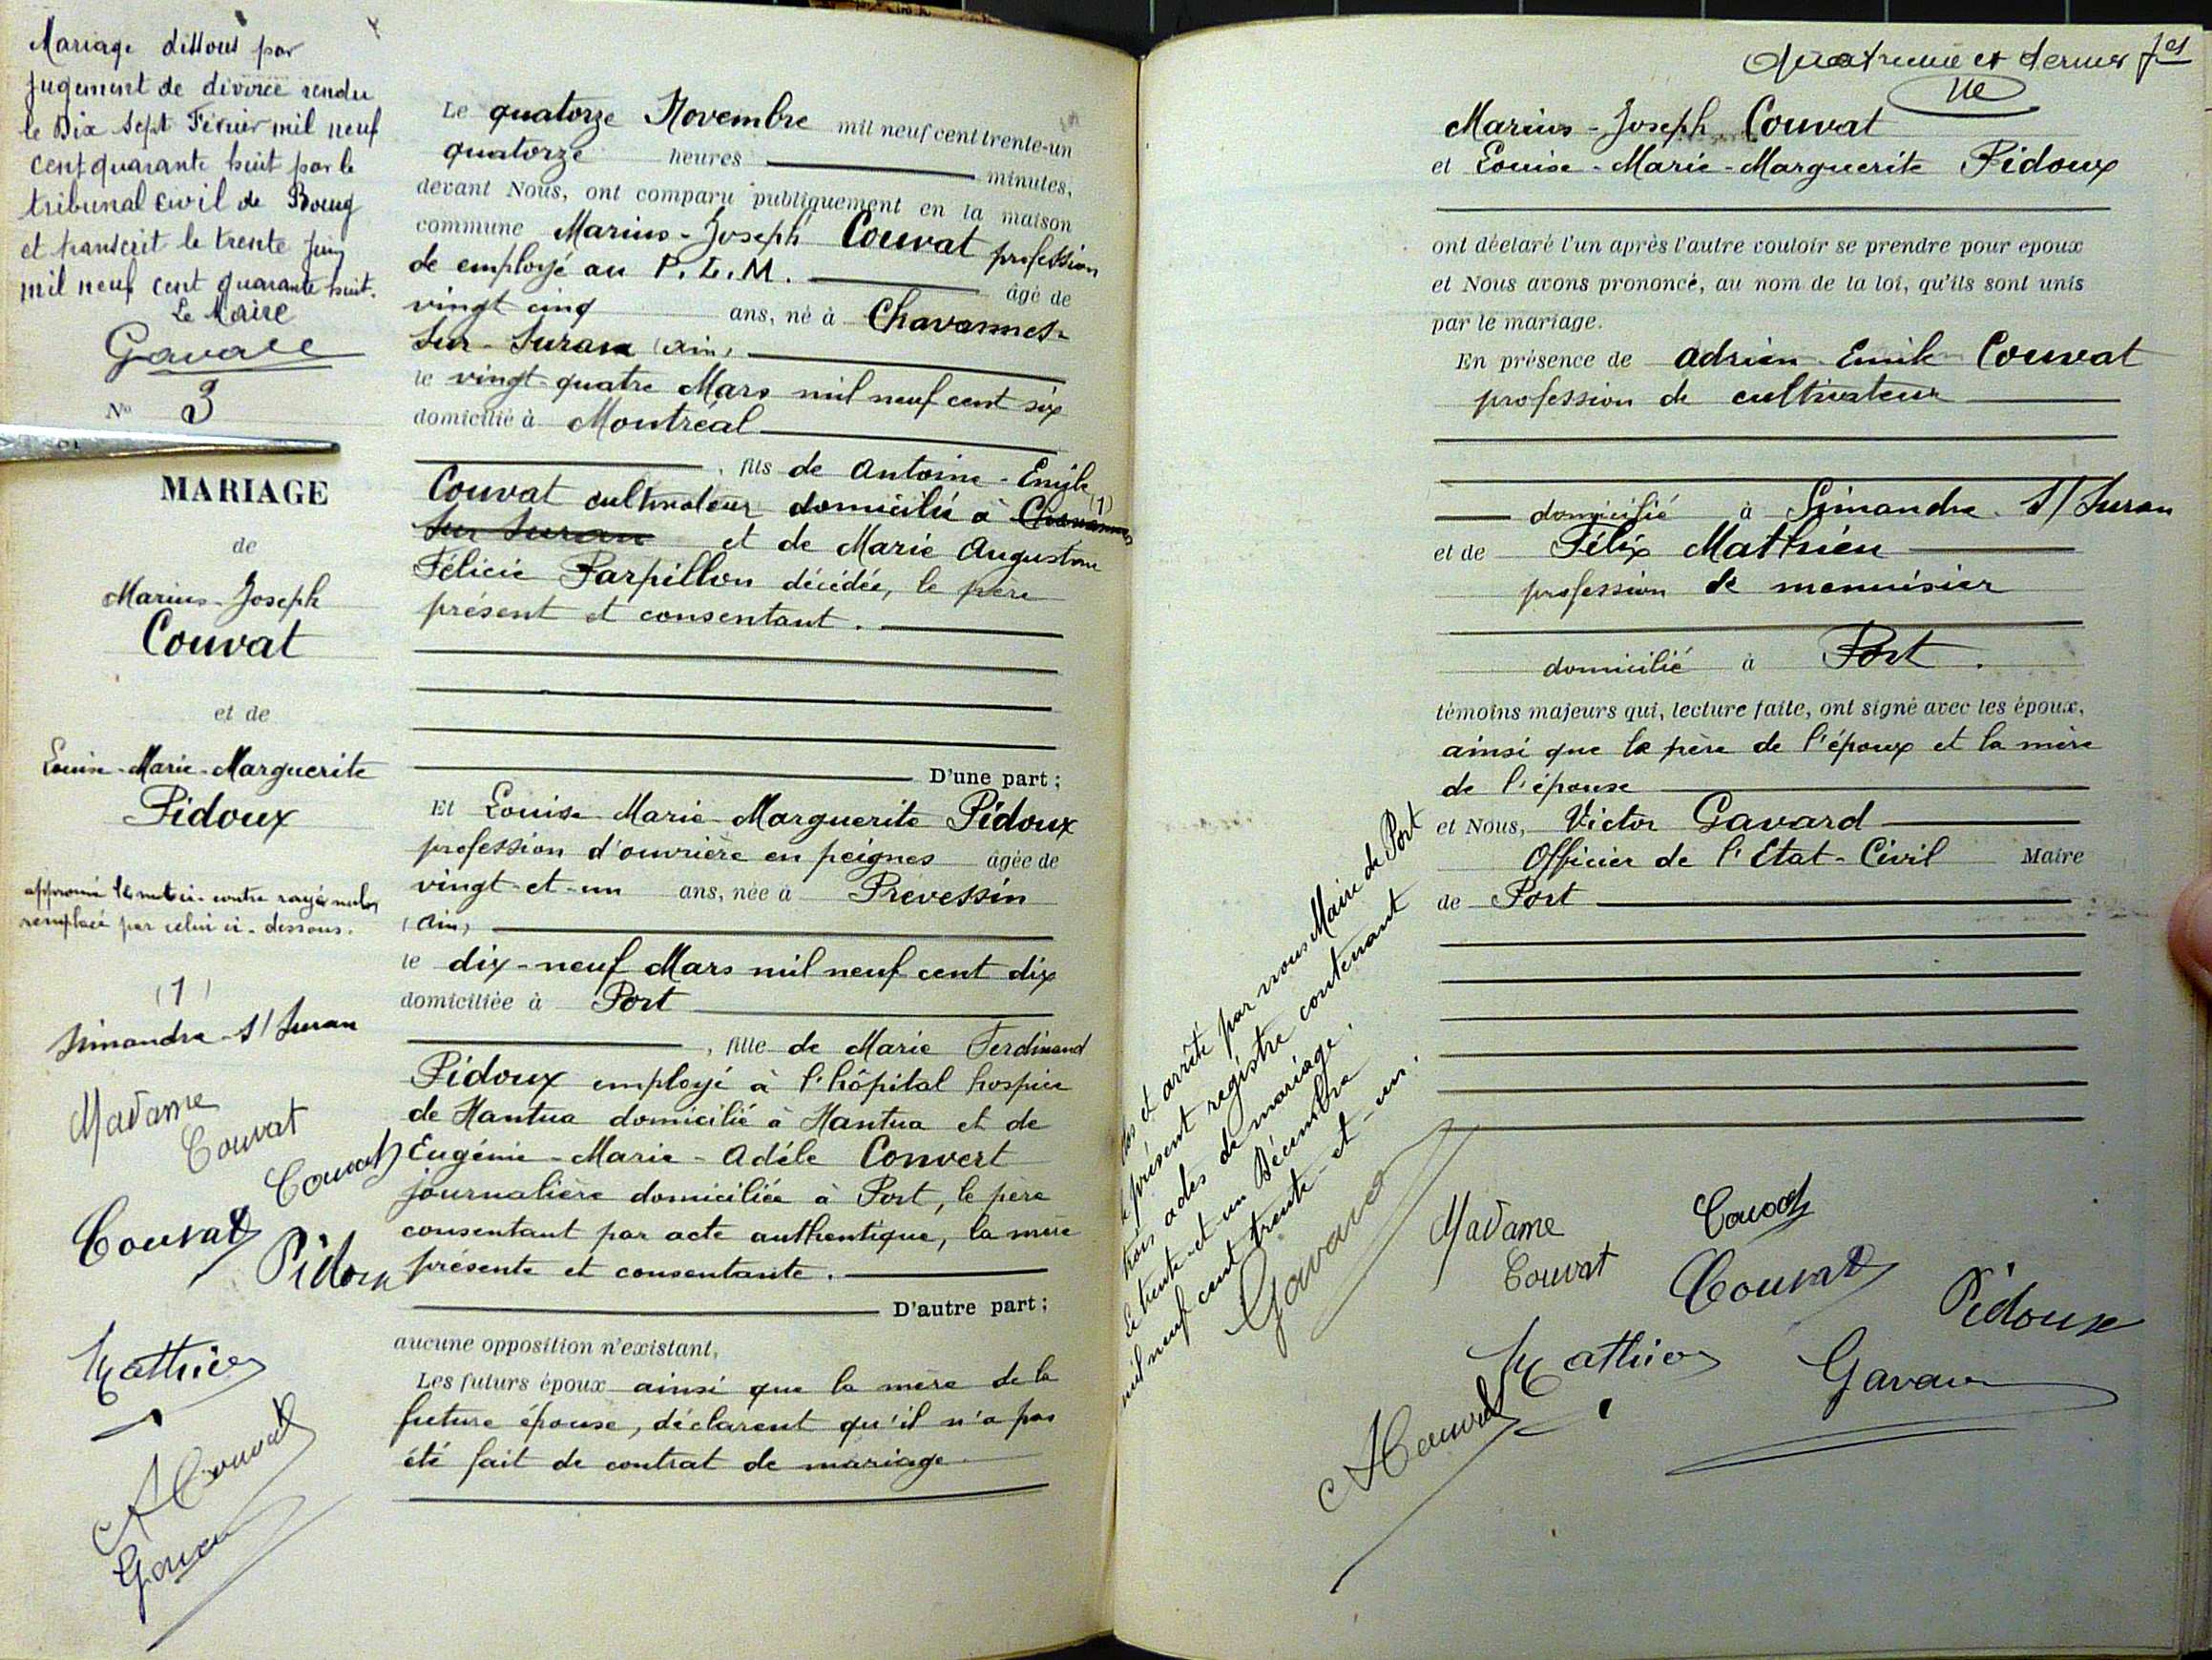 Mariage dissous par
jugement de divorce rendu
le Dix Sept Février mil neuf
cent quarante huit par le
tribunal Civil de Bourg
et transcrit le trente Juin
mil neuf cent quarante huit.
Le Maire
Gavard
N° 3
MARIAGE
de
Marius-Joseph
Couvat
et de
Louise-Marie-Marguerite
Pidoux
approuvé le mot ci-contre rayé nul
remplacé par celui ci-dessous.
(1)
Simandre-s/Suran
Madame
Couvat
Couvat
Couvat
Pidoux
Mathieu
A Couvat
Gavard
Le quatorze Novembre mil neuf cent trente-un
quatorze heures minutes,
devant Nous, ont comparu publiquement en la maison
commune Marius-Joseph Couvat profession
de employé au P.L.M. âgé de
vingt cinq ans, né à Chavannes-
sur-Suran (Ain)
le vingt-quatre Mars mil neuf cent six
domicilié à Montréal
, fils de Antoine-Emile
Couvat cultivateur domicilié à Chavannes (1)
sur Suran et de Marie Augustine
Félicie Parpillon décédée, le père
présent et consentant.
D'une part;
Et Louise-Marie-Marguerite Pidoux
profession d'ouvrière en peignes âgée de
vingt-et-un ans, née à Prévessin
(Ain)
le dix-neuf Mars mil neuf cent dix
domiciliée à Port
, fille de Marie Ferdinand
Pidoux employé à l'hôpital hospice
de Nantua domicilié à Nantua et de
Eugénie-Marie-Adèle Convert
journalière domiciliée à Port, le père
consentant par acte authentique, la mère
présente et consentante.
D'autre part;
aucune opposition n'existant,
Les futurs époux ainsi que la mère de la
future épouse, déclarent qu'il n'a pas
été fait de contrat de mariage
Quatrième et dernier
Marius-Joseph Couvat
et Louise-Marie-Marguerite Pidoux
ont déclaré l'un après l'autre vouloir se prendre pour époux
et Nous avons prononcé, au nom de la loi, qu'ils sont unis
par le mariage.
En présence de Adrien-Emile Couvat
profession de cultivateur
domicilié à Simandre-s/Suran
et de Félix Mathieu
profession de menuisier
domicilié à Port.
témoins majeurs qui, lecture faite, ont signé avec les époux,
ainsi que le père de l'époux et la mère
de l'épouse
et Nous, Victor Gavard
Officier de l'Etat-Civil Maire
de Port
Clos et arrêté par nous Maire de Port
le présent registre contenant
trois actes de mariage.
Le trente-et-un Décembre
mil neuf cent trente-et-un.
Gavard
Madame
Couvat
Couvat
Couvat
Pidoux
Mathieu
Gavard
A Couvat